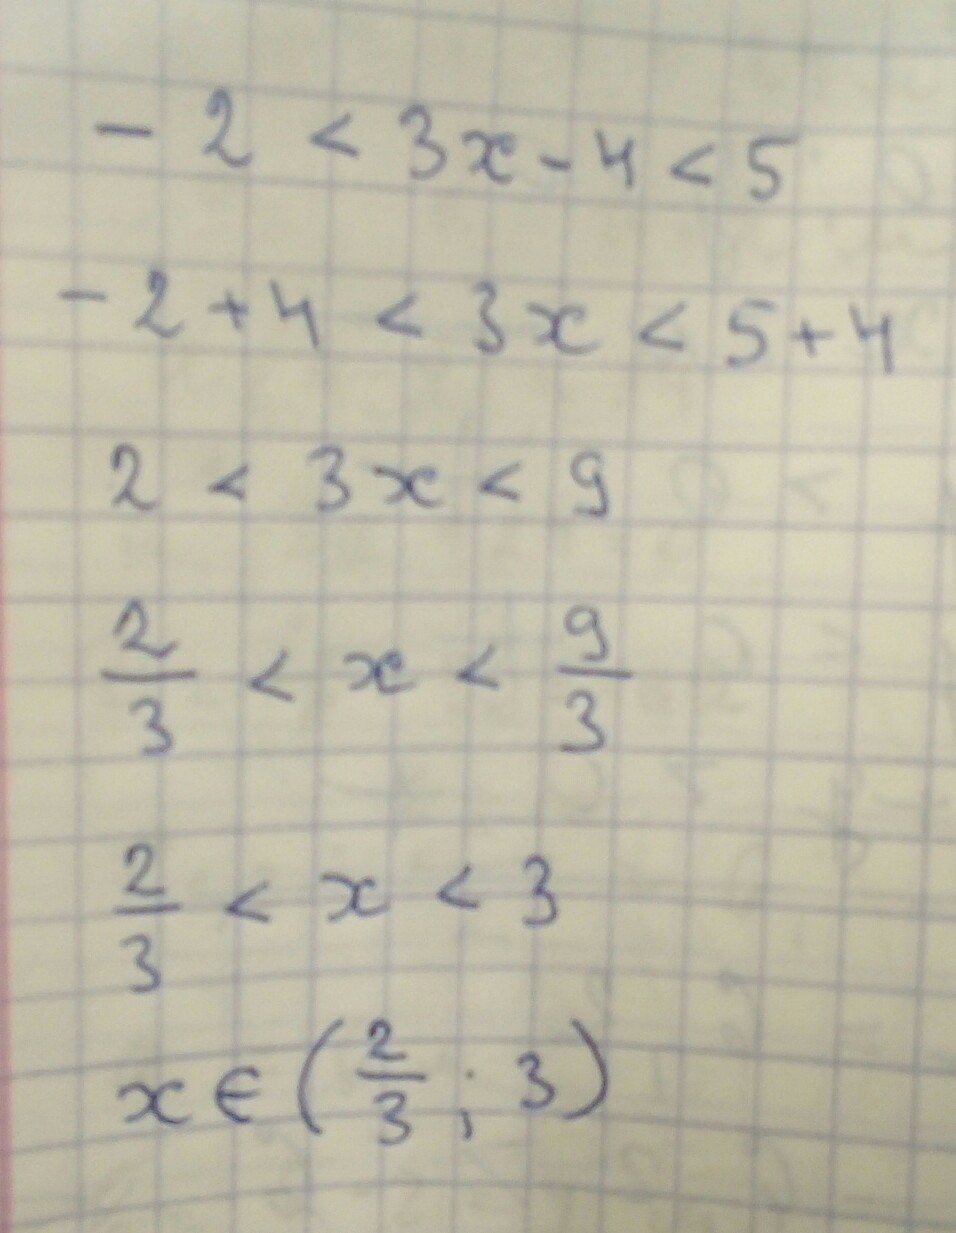 - 2 < 3x - 4 < 5
- 2 + 4 < 3x < 5 + 4
2 < 3x < 9
2/3 < x < 9/3
2/3 < x < 3
x ∈ (2/3 ; 3)